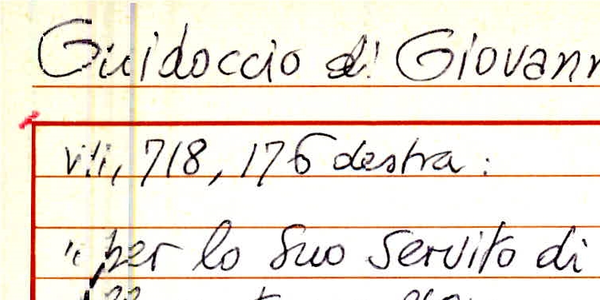 Guidoccio di Giovann
Viti, 718, 176 destra:
"per lo suo servito di